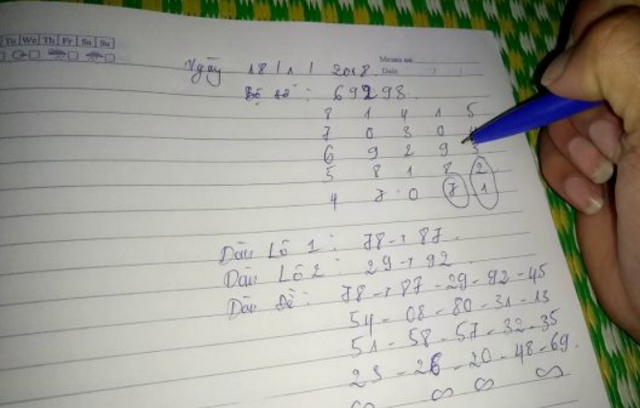 Tu We Th Fr Sa Su
Memo No.
Date / /
Ngày 18/1/2018.
Bộ số: 69298.
8 1 4 1 5
7 0 3 0 4
6 9 2 9 3
5 8 1 8 2
4 7 0 7 1
Dàn Lô 1: 78 → 87.
Dàn Lô 2: 29 → 92
Dàn Đề: 78 → 87 - 29 - 92 - 45
54 - 08 - 80 - 31 - 13
51 - 58 - 57 - 32 - 35
23 - 26 - 20 - 48 - 69.